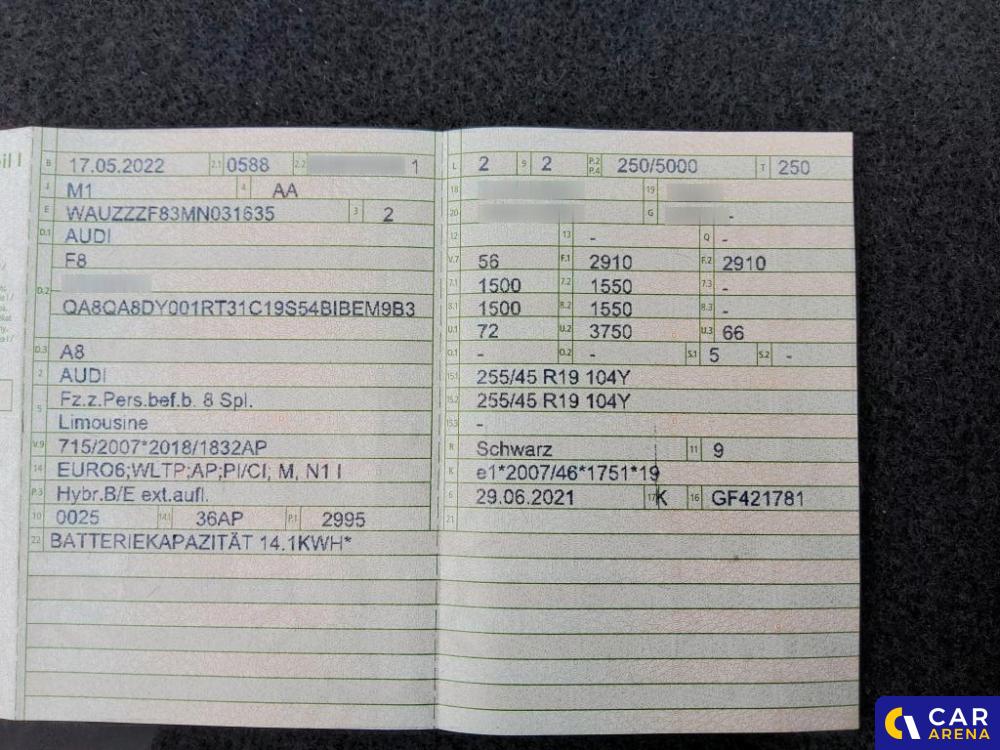 B 17.05.2022 2.1 0588 2.2 1
J M1 4 AA
E WAUZZZF83MN031635 3 2
D.1 AUDI
F8
D.2
QA8QA8DY001RT31C19S54BIBEM9B3
D.3 A8
2 AUDI
5 Fz.z.Pers.bef.b. 8 Spl.
Limousine
V.9 715/2007*2018/1832AP
14 EURO6;WLTP;AP;PI/CI, M, N1 I
P.3 Hybr.B/E ext.aufl.
10 0025 14.1 36AP P.1 2995
22 BATTERIEKAPAZITÄT 14.1KWH*
L 2 9 2 P.2 P.4 250/5000 T 250
18 19
20 G -
12 13 - Q -
V.7 56 F.1 2910 F.2 2910
7.1 1500 7.2 1550 7.3 -
8.1 1500 8.2 1550 8.3 -
U.1 72 U.2 3750 U.3 66
O.1 - O.2 - S.1 5 S.2 -
15.1 255/45 R19 104Y
15.2 255/45 R19 104Y
15.3 -
R Schwarz 11 9
K e1*2007/46*1751*19
6 29.06.2021 17 K 16 GF421781
21
CAR
ARENA